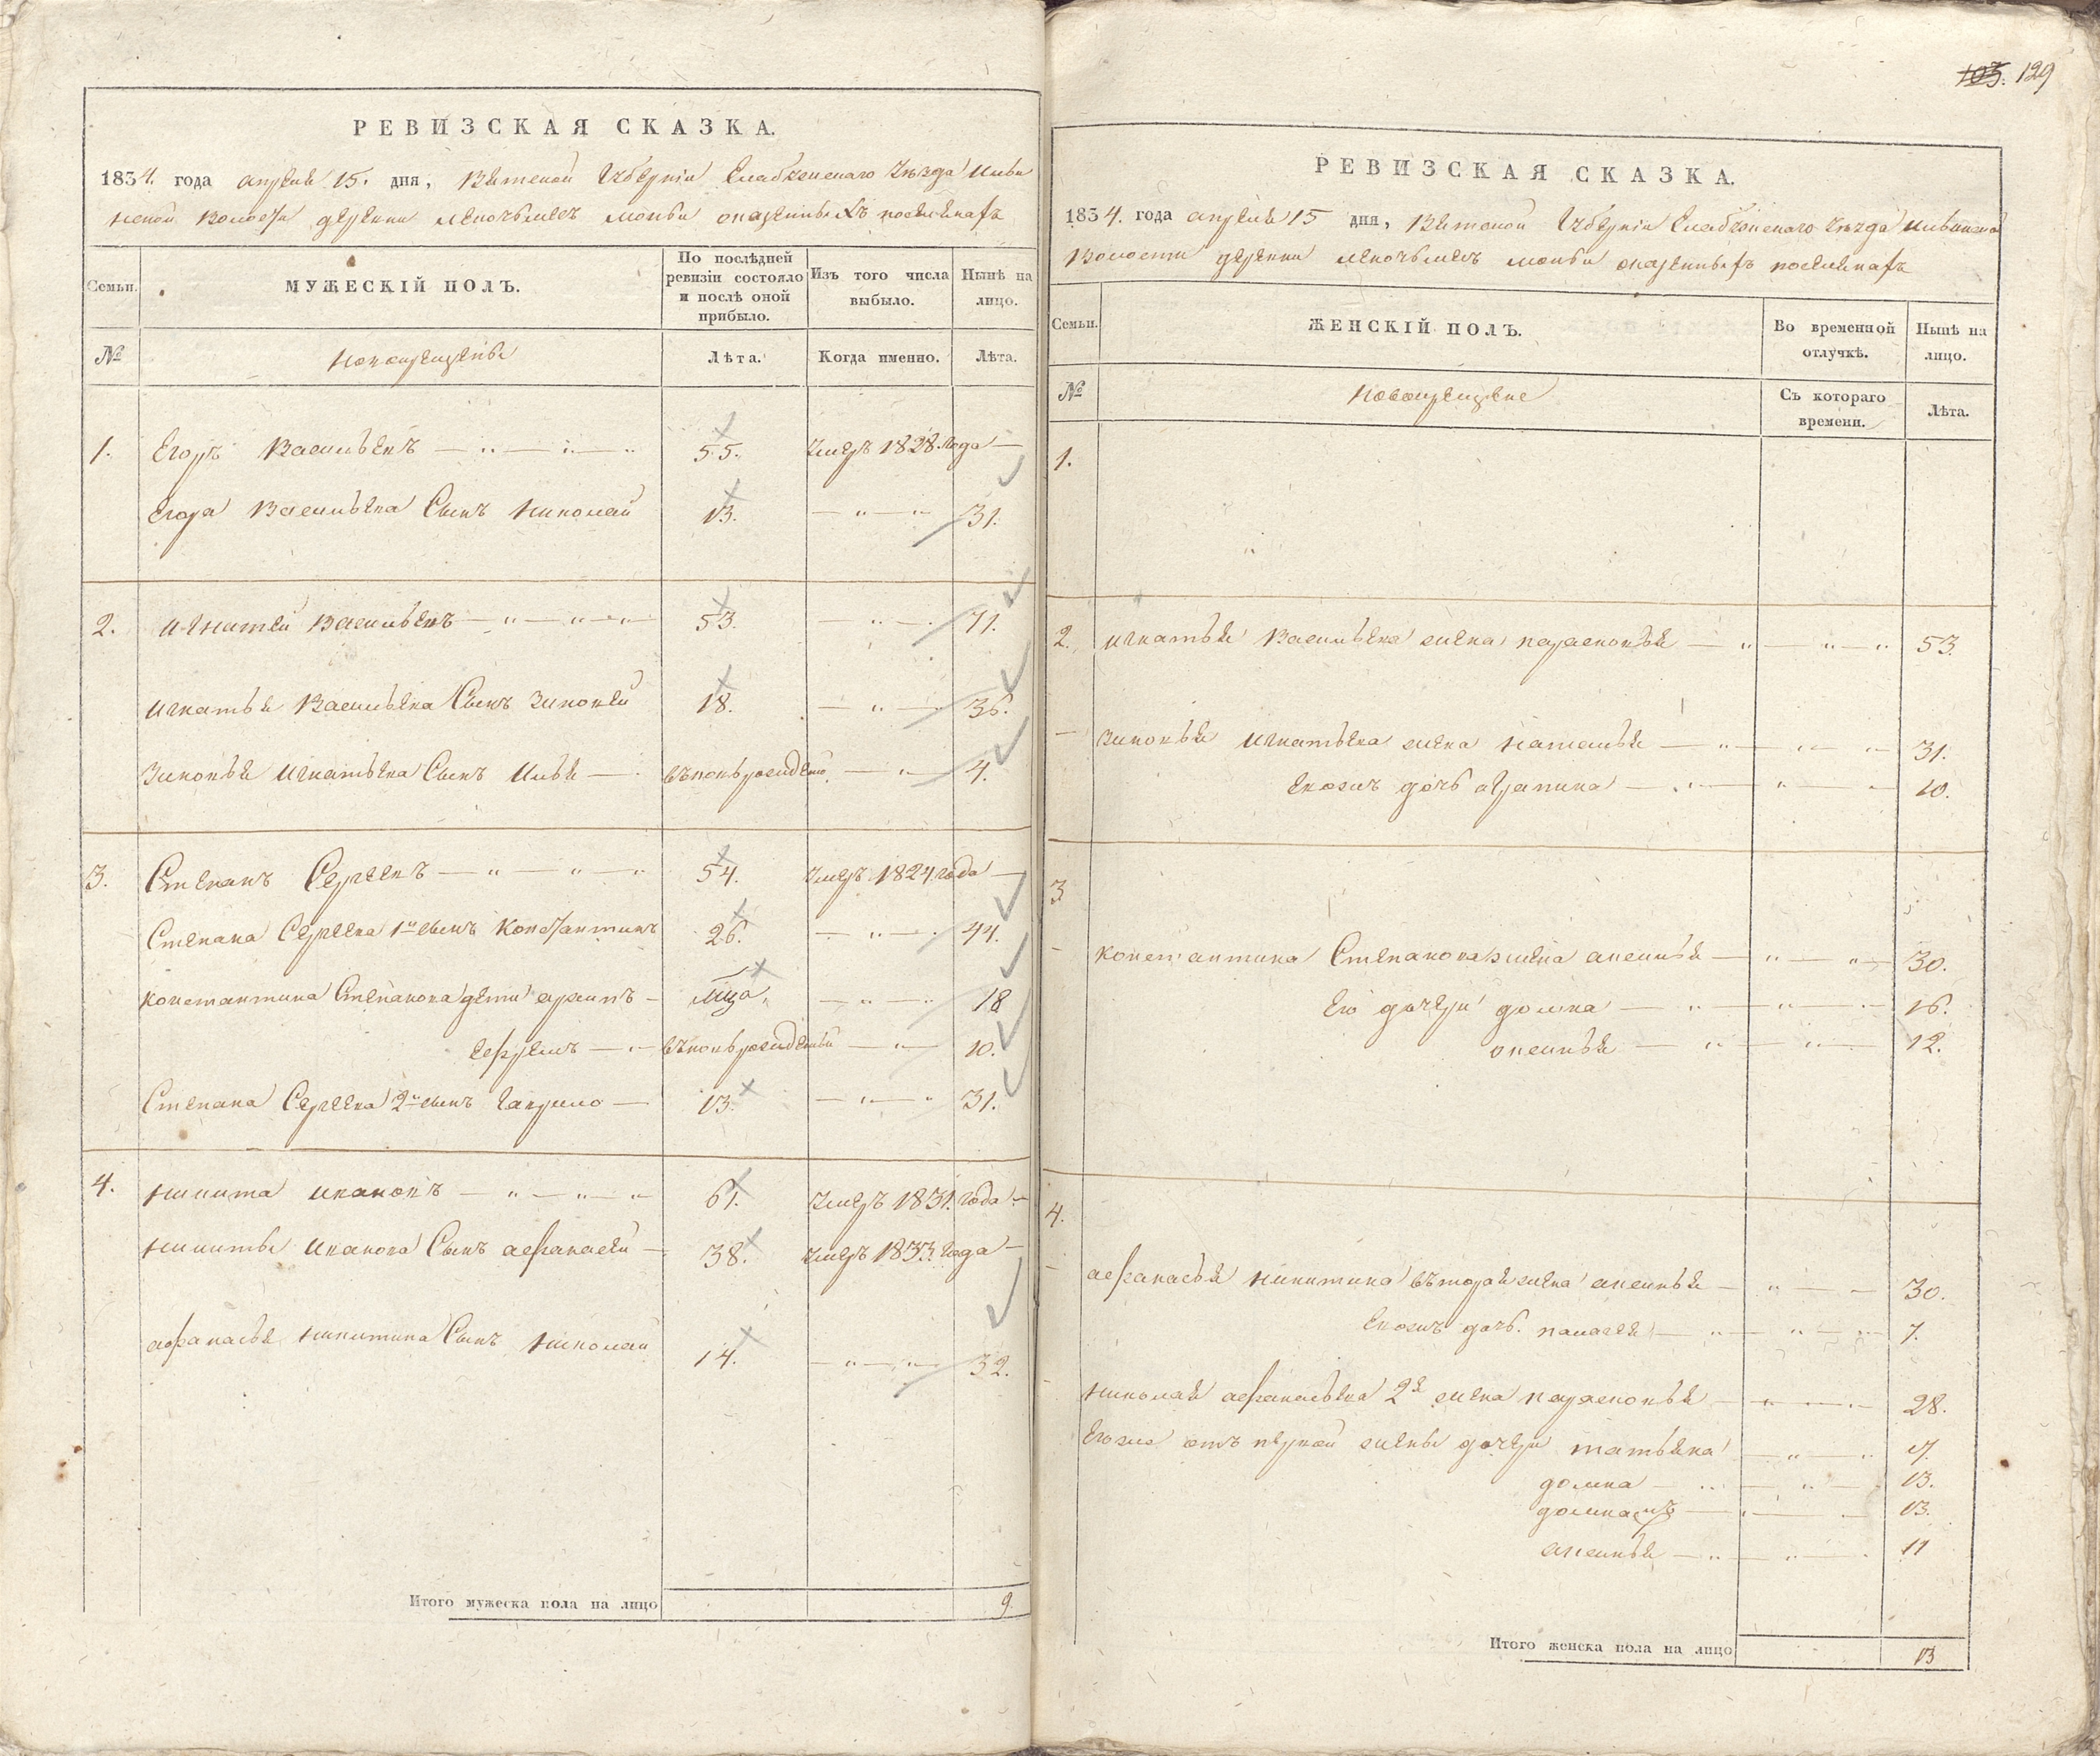 РЕВИЗСКАЯ СКАЗКА.
1834. года апреля 15. дня, Вятской Губернiи Елабужскаго Уезда Ильи
нской Волости деревни можги
Семьи.
МУЖЕСКIЙ ПОЛЪ.
По послѣдней ревизiи состояло и послѣ оной прибыло.
Изъ того числа выбыло.
Нынѣ на лицо.
№
новокрещены
Лѣта.
Когда именно.
Лѣта.
1. Егоръ Васильевъ 55. умеръ 1828. года
Егора Васильева Сынъ николай 13. 31.
2. игнатей Васильевъ 53. 71.
игнатья Васильева Сынъ Зиновей 18. 36.
Зиновья игнатьева Сынъ илья 4.
3. Степанъ Сергеевъ 54. умеръ 1824 года
Степана Сергеева 1й сынъ константинъ 26. 44.
константина Степанова дети архипъ 18
ефремъ 10.
Степана Сергеева 2й сынъ гаврило 13. 31.
4. никита ивановъ 61. умеръ 1831. года
никиты иванова Сынъ афанасей 38. умеръ 1833. года
афанасья никитина Сынъ николай 14. 32.
Итого мужеска пола на лицо 9.
103. 129
РЕВИЗСКАЯ СКАЗКА.
1834. года апреля 15 дня, Вятской Губернiи Елабужскаго уезда ильинской
Волости деревни можги
Семьи.
ЖЕНСКIЙ ПОЛЪ.
Во временной отлучкѣ.
Нынѣ на лицо.
№
новокрещеные
Съ котораго времени.
Лѣта.
1.
2. игнатья Васильева жена парасковья 53.
Зиновья игнатьева жена наталья 31.
евожъ дочь аграпина 10.
3
константина Степанова жена анисья 30.
Его дочери домна 16.
12.
4.
афанасья никитина вторая жена 30.
Евожъ дочь. палагея 7.
николая афанасьева 2я жена парасковья 28.
Егоже отъ первой жены дочери татьяна
домна 13.
13.
11
Итого женска пола на лицо 13